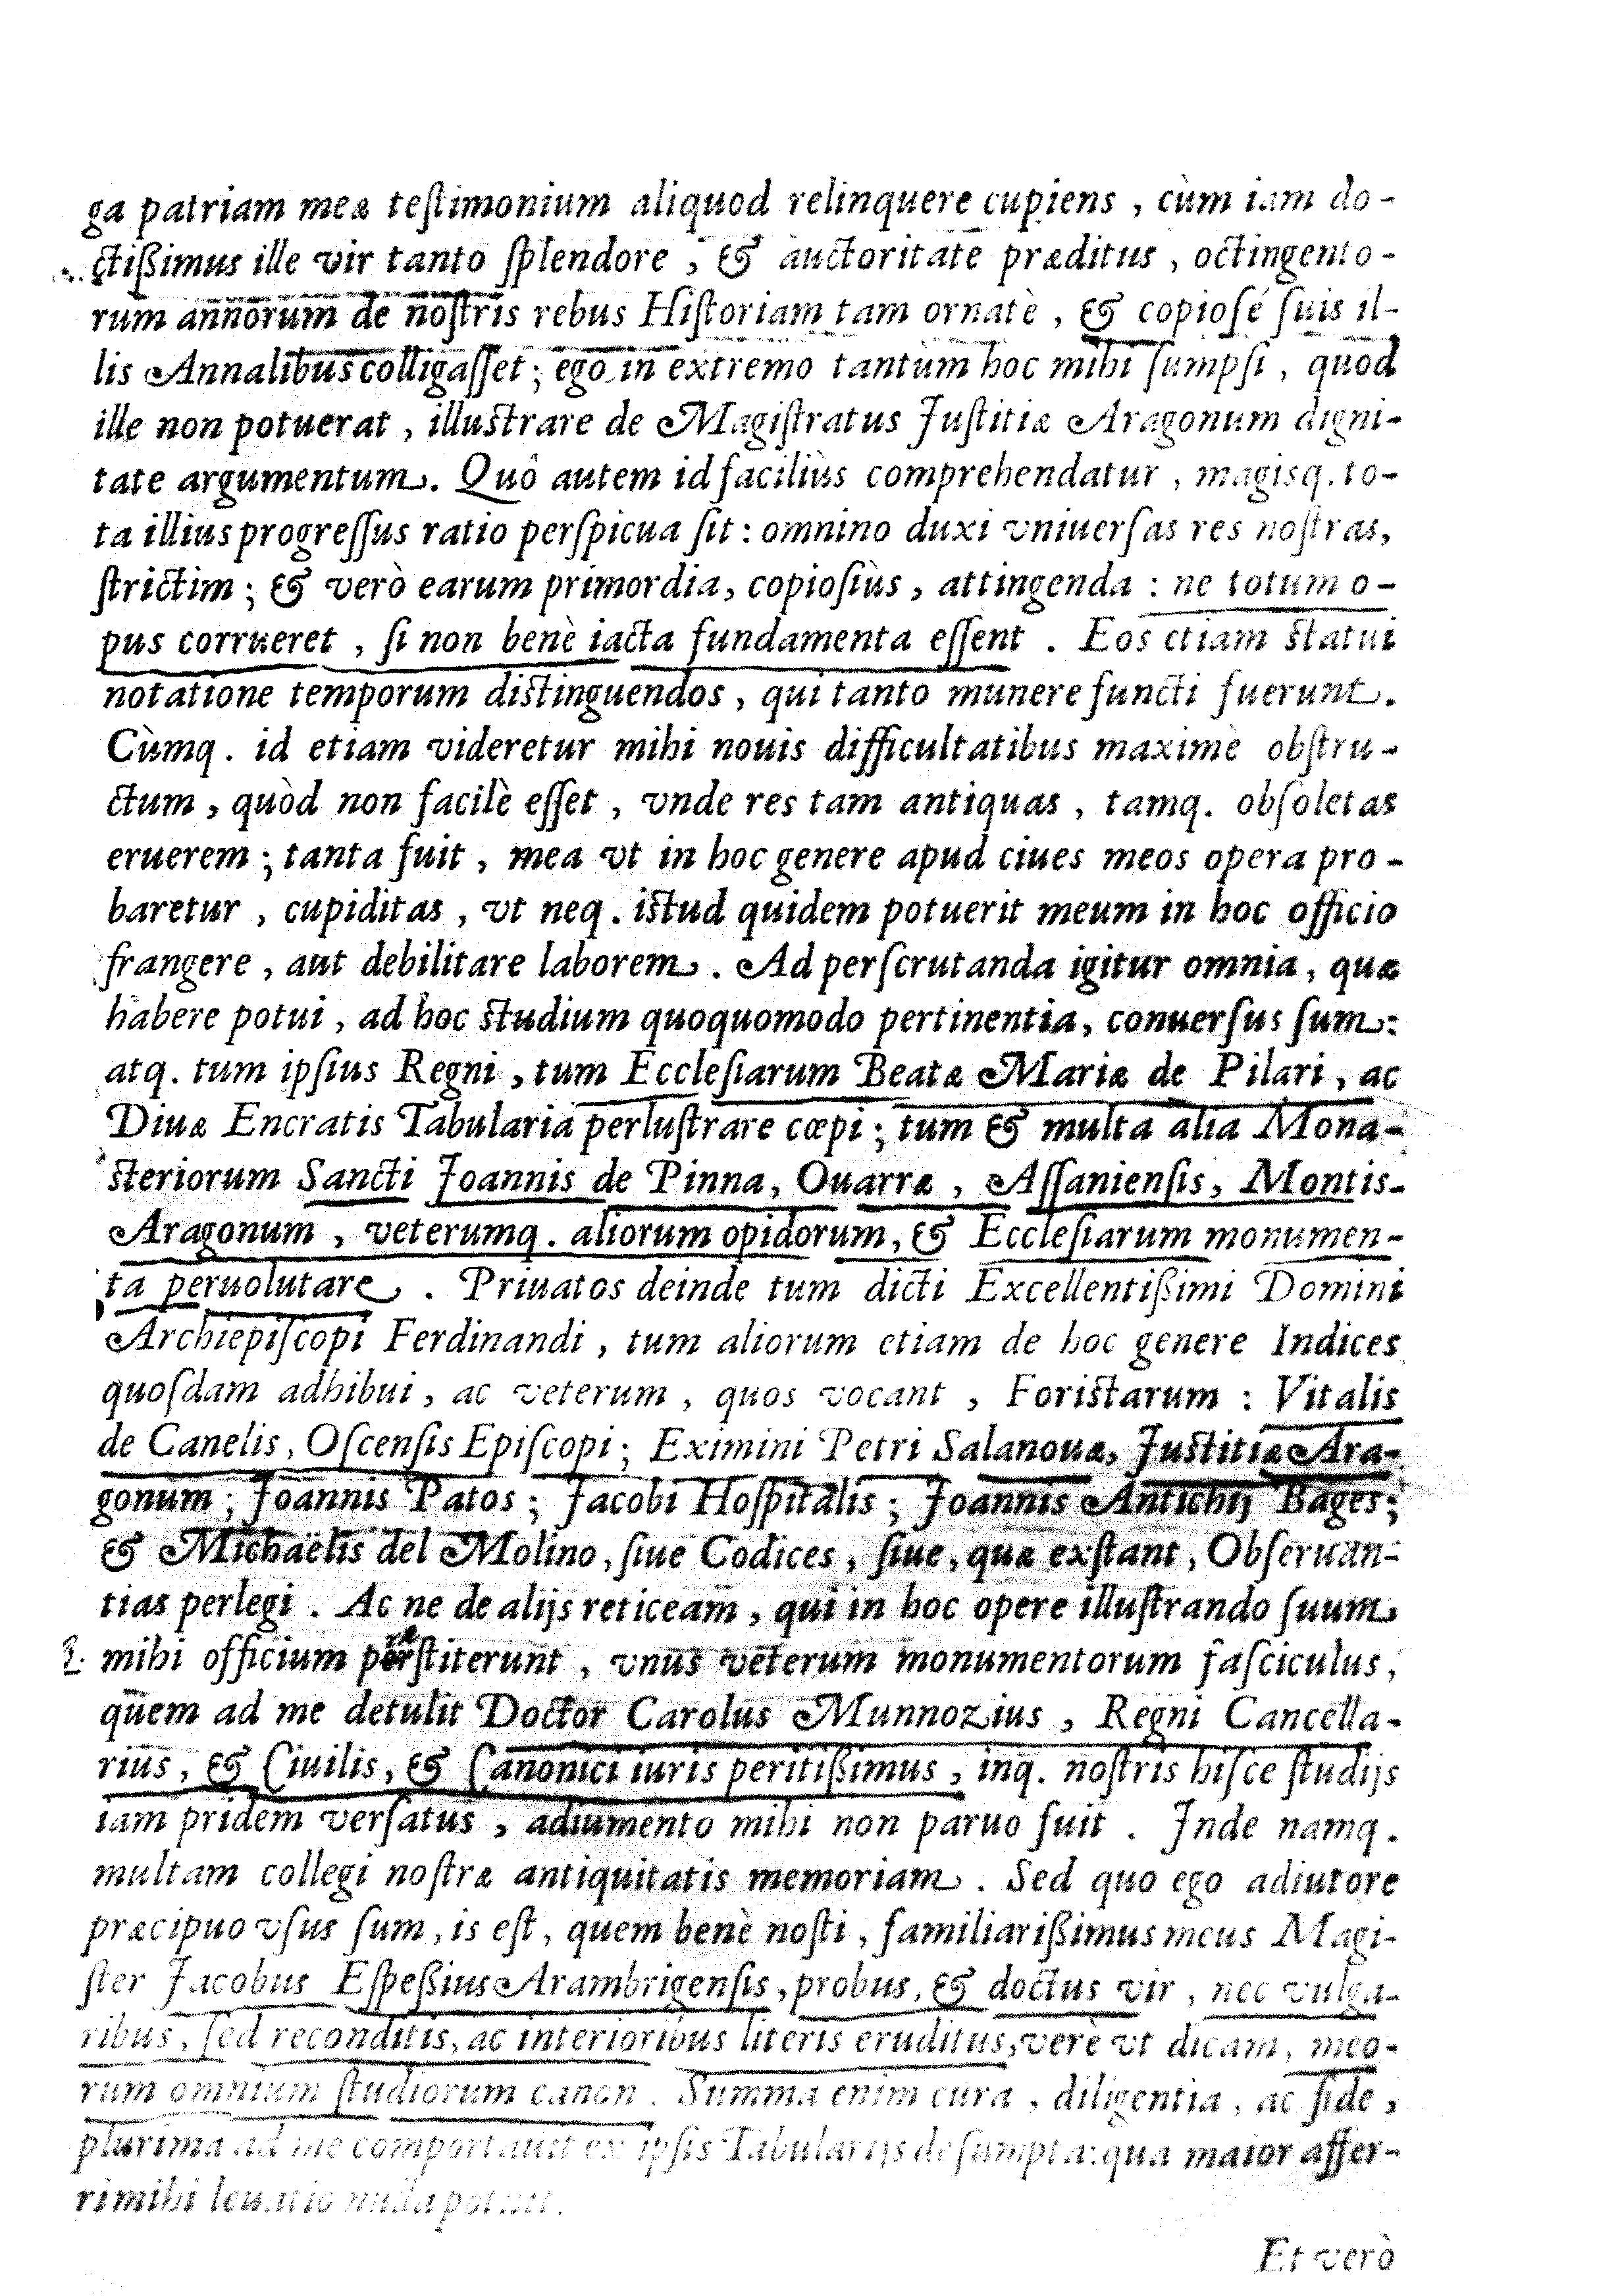 ga patriam meæ teſtimonium aliquod relinquere cupiens , cùm iam do-
ctißimus ille vir tanto ſplendore , & auctoritate præditus , octingento-
rum annorum de noſtris rebus Hiſtoriam tam ornatè , & copioſé ſuis il-
lis Annalibus colligaſſet ; ego in extremo tantùm hoc mihi ſumpſi , quod
ille non potuerat , illuſtrare de Magiſtratus Juſtitiæ Aragonum digni-
tate argumentum . Quô autem id faciliùs comprehendatur , magisq. to-
ta illius progreſſus ratio perſpicua ſit : omnino duxi vniuerſas res noſtras,
ſtrictim ; & verò earum primordia, copioſiùs , attingenda : ne totum o-
pus corrueret , ſi non benè iacta fundamenta eſſent . Eos etiam ſtatui
notatione temporum diſtinguendos , qui tanto munere functi fuerunt .
Cùmq . id etiam videretur mihi nouis difficultatibus maximè obſtru-
ctum , quòd non facilè eſſet , vnde res tam antiquas , tamq. obſoletas
eruerem ; tanta fuit , mea vt in hoc genere apud ciues meos opera pro-
baretur , cupiditas , vt neq . iſtud quidem potuerit meum in hoc officio
frangere , aut debilitare laborem . Ad perſcrutanda igitur omnia , quæ
habere potui , ad hoc ſtudium quoquomodo pertinentia, conuerſus ſum :
atq. tum ipſius Regni , tum Eccleſiarum Beatæ Mariæ de Pilari , ac
Diuæ Encratis Tabularia perluſtrare cœpi ; tum & multa alia Mona-
ſteriorum Sancti Joannis de Pinna, Ouarræ , Aſſanienſis, Montis-
Aragonum , veterumq . aliorum opidorum, & Eccleſiarum monumen-
ta peruolutare . Priuatos deinde tum dicti Excellentißimi Domini
Archiepiſcopi Ferdinandi , tum aliorum etiam de hoc genere Indices
quoſdam adhibui , ac veterum , quos vocant , Foriſtarum : Vitalis
de Canelis, Oſcenſis Epiſcopi ; Eximini Petri Salanouæ, Juſtitiæ Ara-
gonum ; Joannis Patos ; Jacobi Hoſpitalis ; Joannis Antichij Bages ;
& Michaëlis del Molino , ſiue Codices , ſiue , quæ exſtant , Obſeruan-
tias perlegi . Ac ne de alijs reticeam , qui in hoc opere illuſtrando ſuum
mihi officium præſtiterunt , vnus veterum monumentorum faſciculus ,
quem ad me detulit Doctor Carolus Munnozius , Regni Cancella-
rius , & Ciuilis , & Canonici iuris peritißimus , inq. noſtris hiſce ſtudijs
iam pridem verſatus , adiumento mihi non paruo fuit . Inde namq.
multam collegi noſtræ antiquitatis memoriam . Sed quo ego adiutore
præcipuo vſus ſum , is eſt , quem benè noſti , familiarißimus meus Magi-
ſter Jacobus Eſpeßius Arambrigenſis , probus , & doctus vir , nec vulga-
ribus , ſed reconditis, ac interioribus literis eruditus, verè vt dicam , meo-
rum omnium ſtudiorum canon . Summa enim cura , diligentia , ac fide ,
plurima ad me comportauit ex ipſis Tabularijs deſumpta: qua maior affer-
ri mihi leuatio nulla potuit .
Et verò